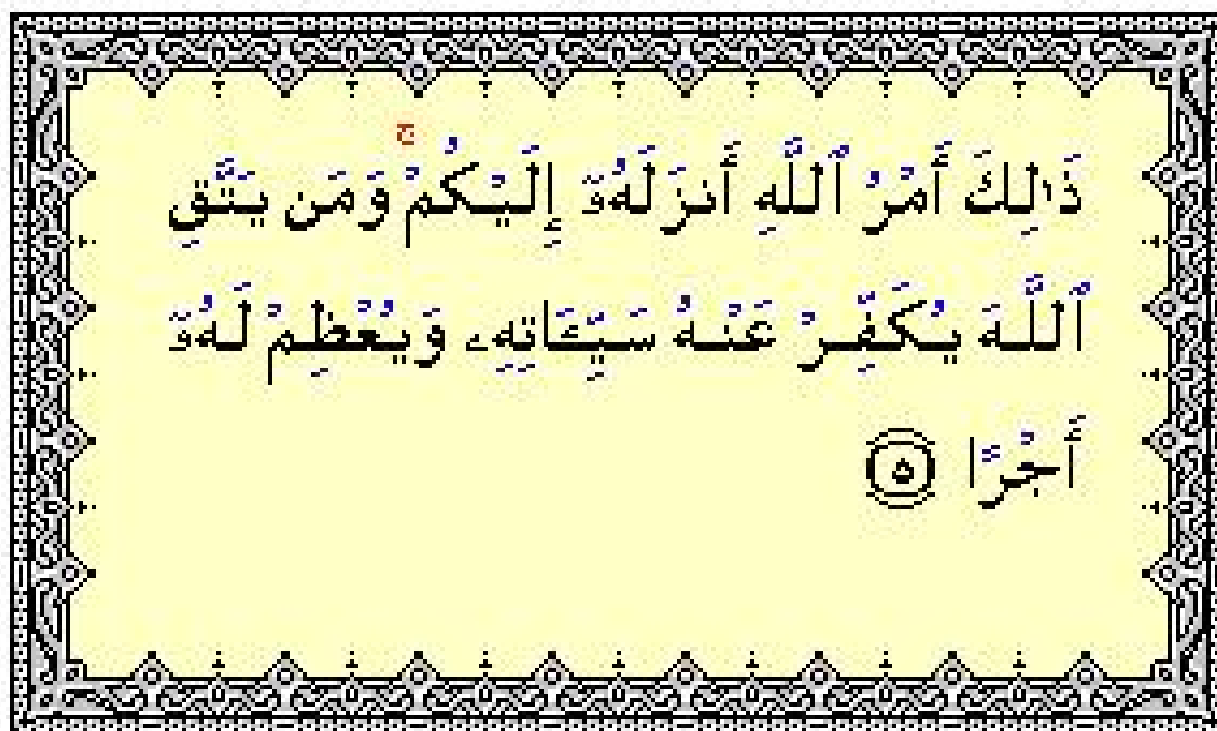 ذَٰلِكَ أَمْرُ ٱللَّهِ أَنزَلَهُۥٓ إِلَيْكُمْ ۚ وَمَن يَتَّقِ
ٱللَّهَ يُكَفِّرْ عَنْهُ سَيِّـَٔاتِهِۦ وَيُعْظِمْ لَهُۥٓ
أَجْرًا ٥